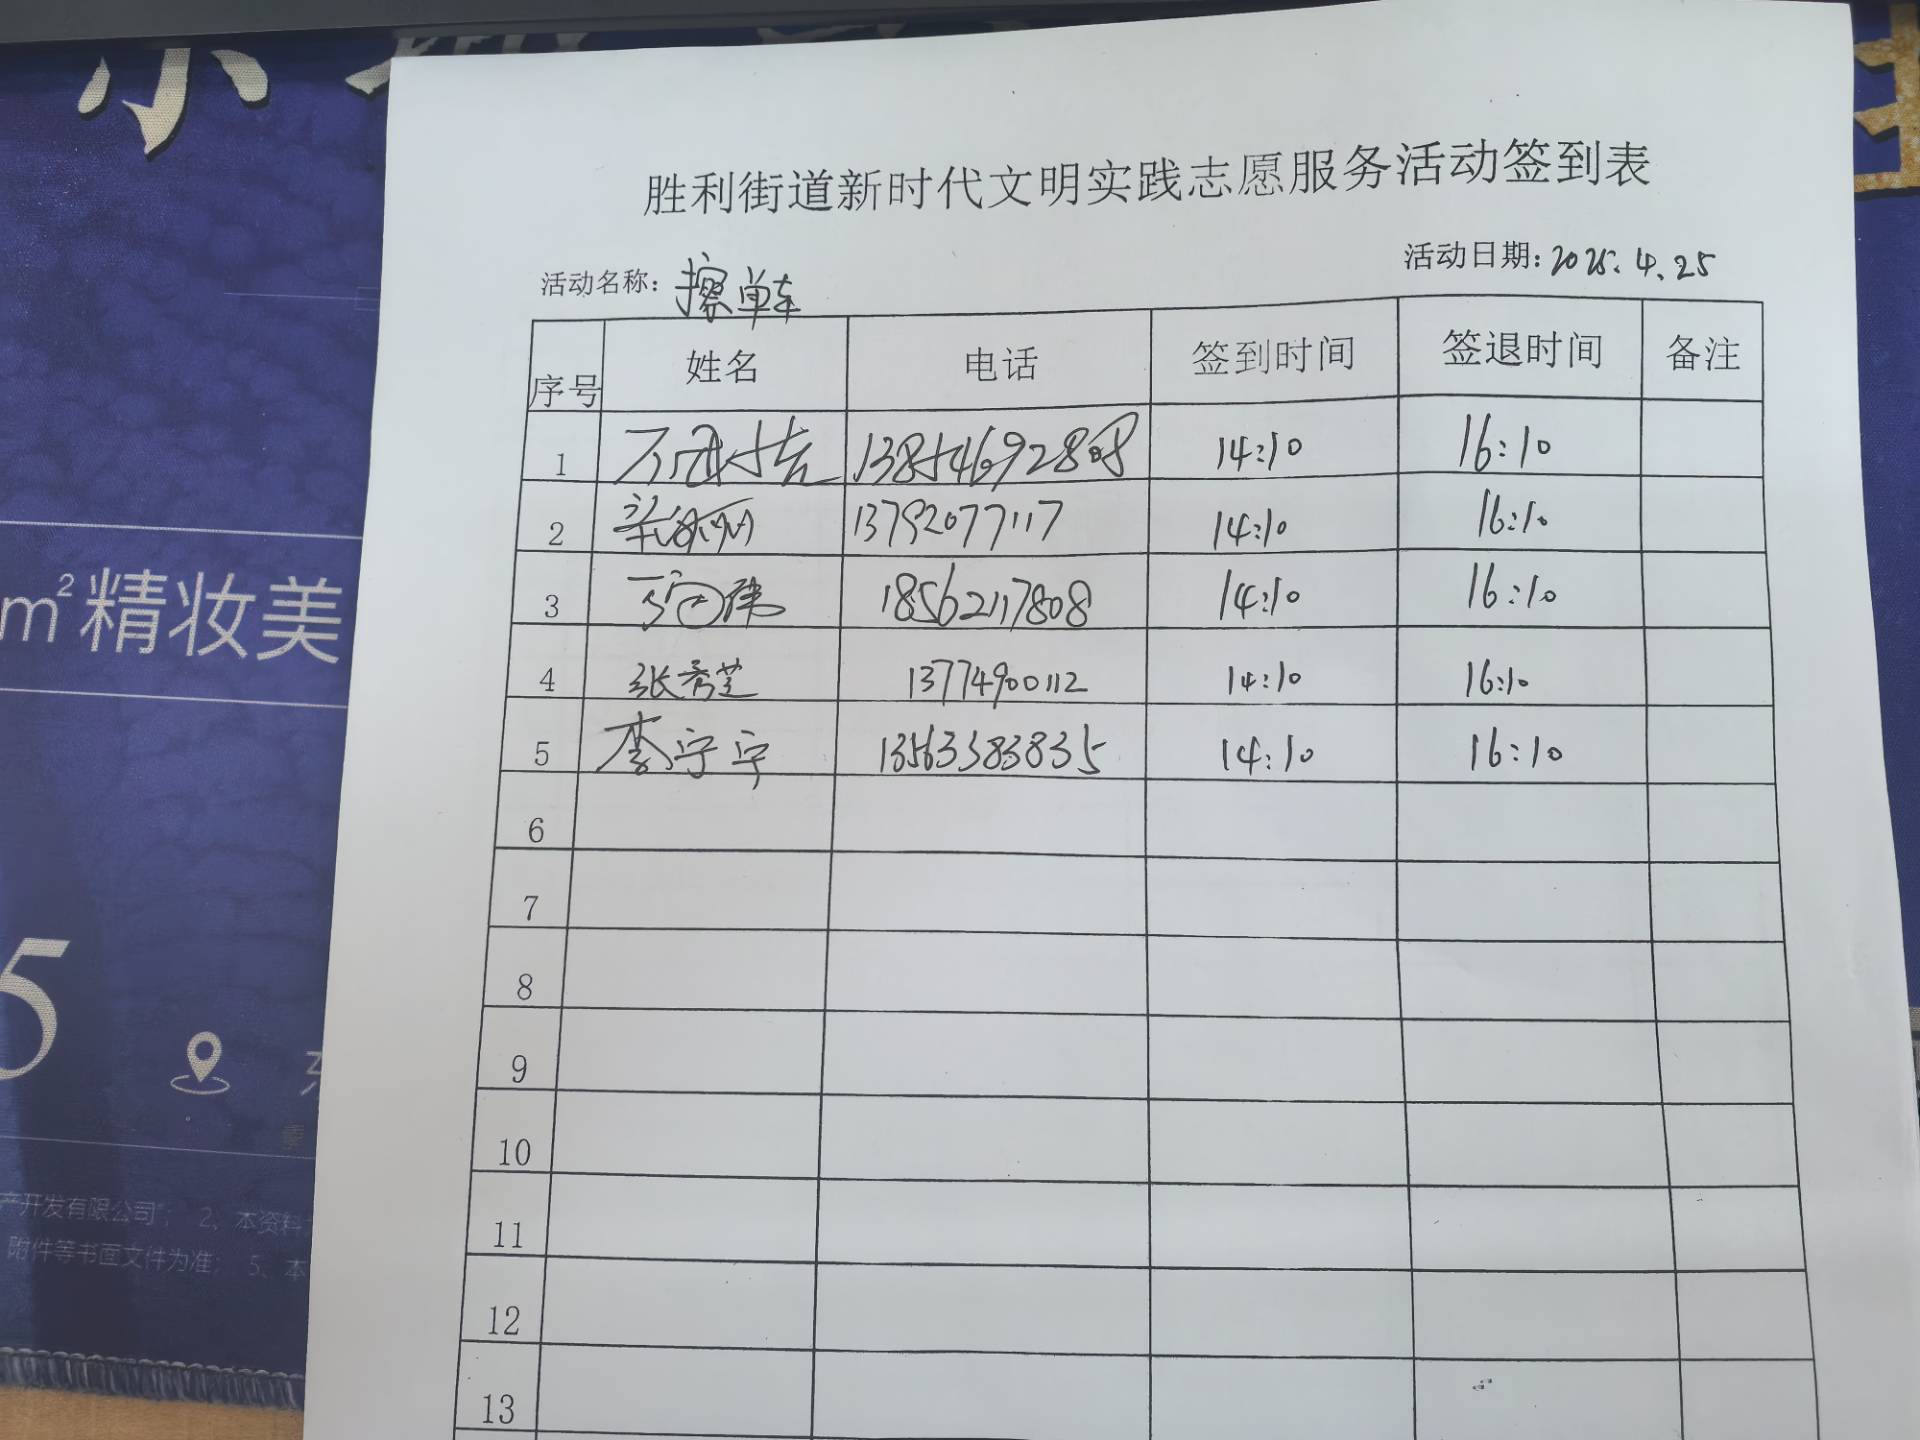 m²精妆美
5
产开发有限公司"; 2、本资料
附件等书面文件为准; 5、本
胜利街道新时代文明实践志愿服务活动签到表
活动名称: 擦单车 活动日期: 2025.4.25
序号 姓名 电话 签到时间 签退时间 备注
1 14:10 16:10
2 13792077117 14:10 16:10
3 18562117808 14:10 16:10
4 张秀芝 13774900112 14:10 16:10
5 李宁宁 13563383835 14:10 16:10
6
7
8
9
10
11
12
13